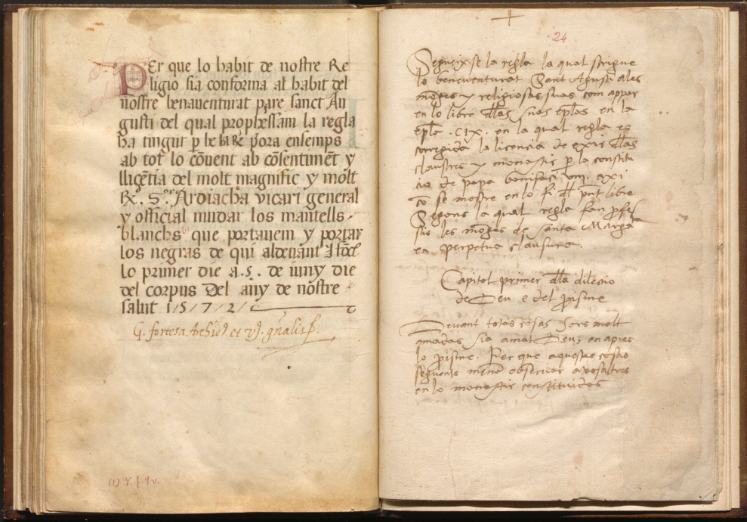 Per que lo habit de nostre Re
ligio sia conforma al habit del
nostre benauenturat pare sanct Au
gusti del qual prophessam la regla
ha tingut p be la Re pora ensemps
ab tot lo cõuent ab cõsentimẽt y
lligẽtia del molt magnific y molt
R. S.or Ardiacha vicari general
y official mudar los mantells
blanchs que portauem y portar
los negras de qui aldeuant
lo primer die a .5. de iuny die
del corpus Del any de nostre
salut 1/5/7/2/
G. fortesa
(1) V. f. 9 v.
24
Segueix se la regla la qual scrigue
lo beneuenturat Sant Agusti a les
mõges y religiosas suas com appar
en lo libre dllas suas eplas en la
epla .CIX. en la qual regla es
corregida la licencia de exir dllas
claustres y monastir p la constitu
cio de papa bonifaci viii. axi
co se mostre en lo fi dl pñt libre
Segons la qual regla fan profes
sio les mõges de santa Margã
en perpetua clausura.
Capitol primer dlla dilectio
de Deu e del proisme
Deuant totas cosas sors molt
amadas sia amat Deu, en apres
lo proisme. Per que aquestas cosas
seguents manã obseruar a vosaltres
en lo monastir constituidas